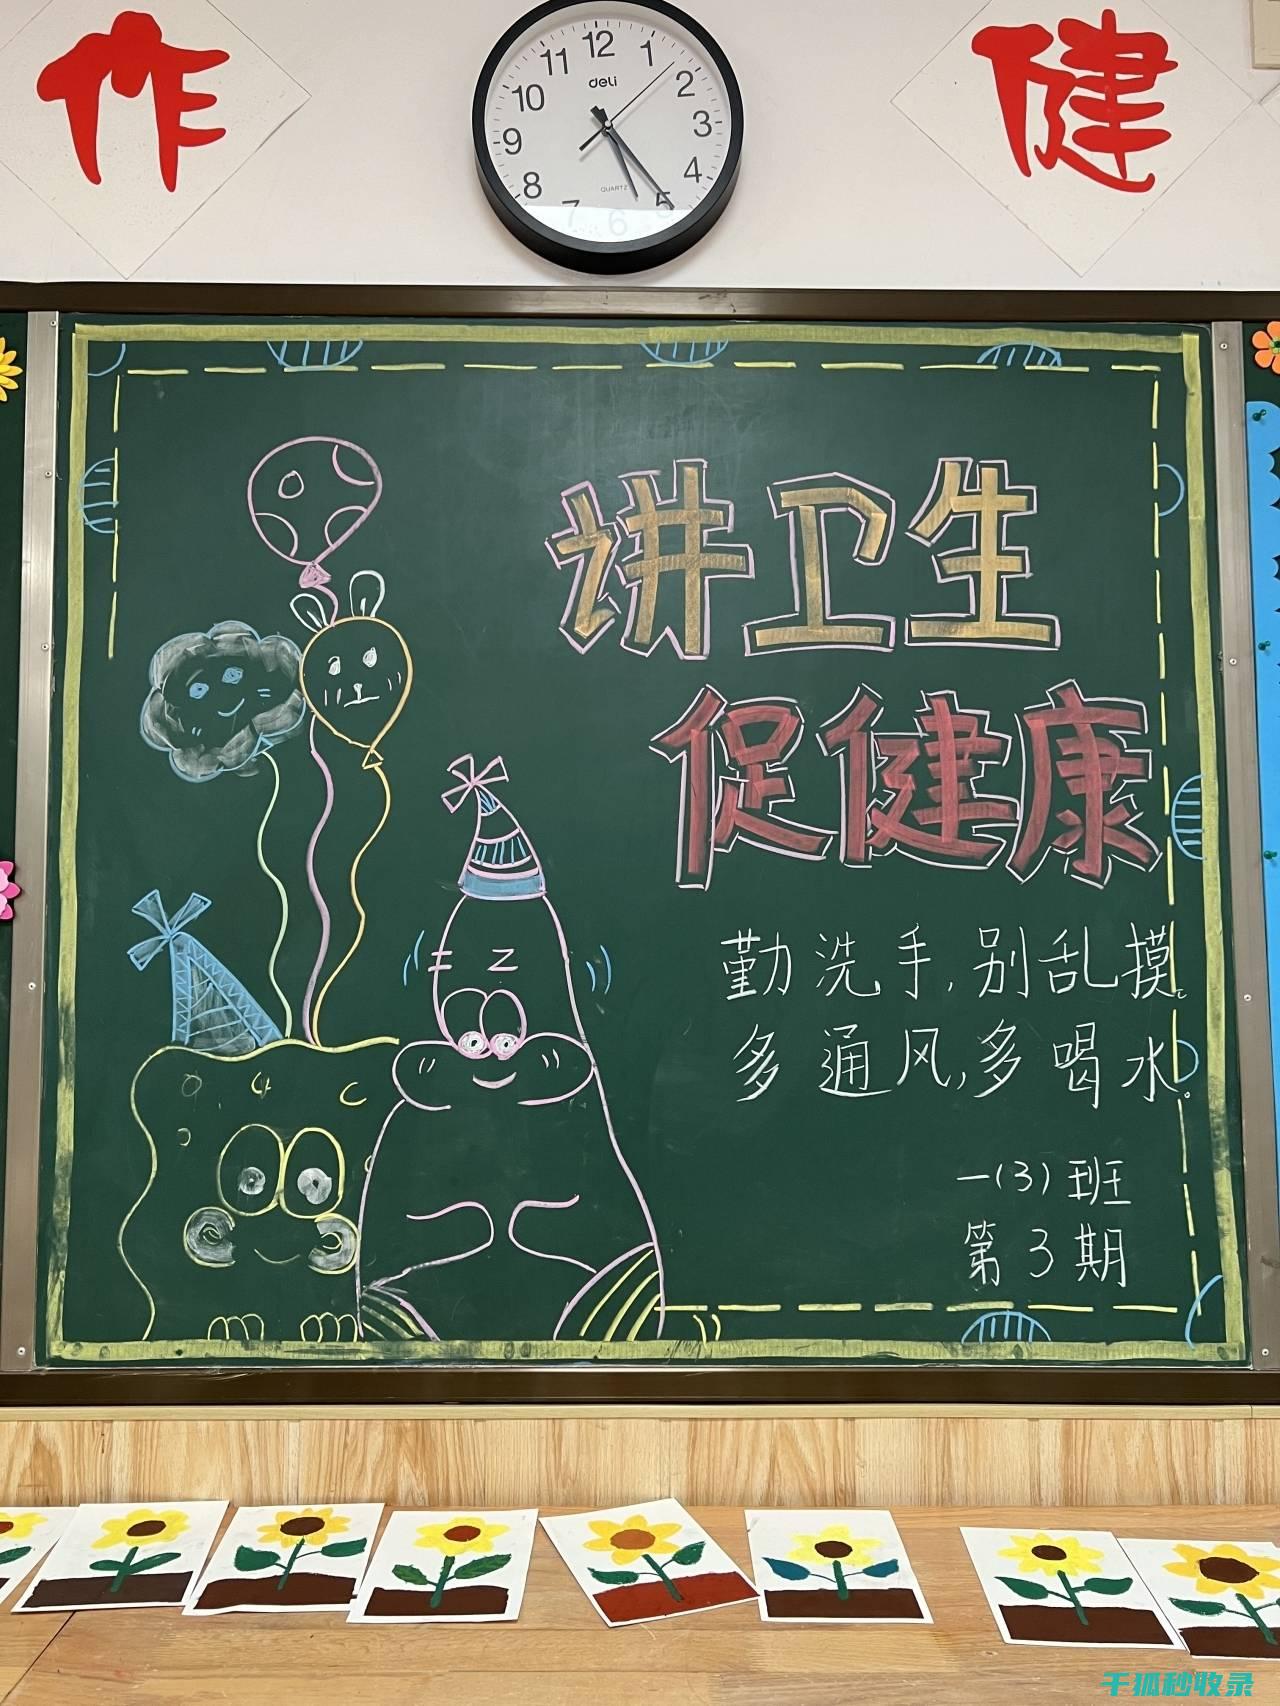 作
健
12
1
2
3
4
5
6
7
8
9
10
11
deli
QUARTZ
讲卫生
促健康
勤洗手,别乱摸。
多通风,多喝水。
一(3)班
第3期
千狐秒收录